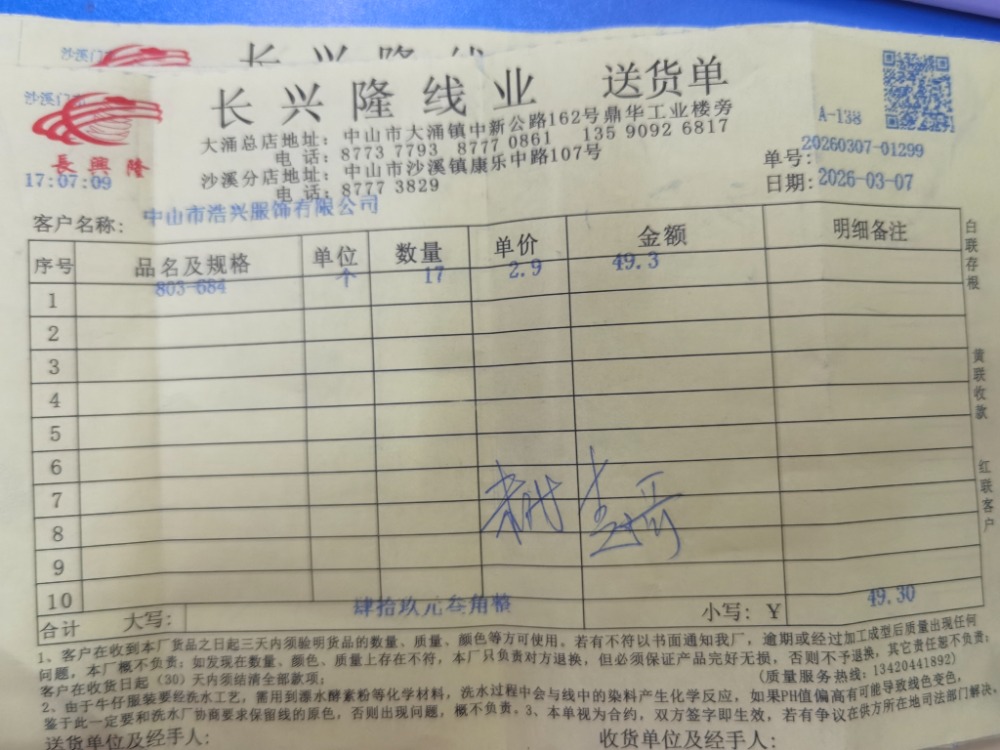 沙溪门
长兴隆线
沙溪门
长兴隆线业 送货单
長興隆
A-138
大涌总店地址：中山市大涌镇中新公路162号鼎华工业楼旁
电话：8773 7793 8777 0861 135 9092 6817
沙溪分店地址：中山市沙溪镇康乐中路107号
电话：8777 3829
单号：20260307-01299
日期：2026-03-07
17:07:09
客户名称：中山市浩兴服饰有限公司
序号 品名及规格 单位 数量 单价 金额 明细备注
1 803-684 个 17 2.9 49.3
2
3
4
5
6
7
8
9
10
合计 大写：肆拾玖元叁角整 小写：¥ 49.30
白联存根
黄联收款
红联客户
1、客户在收到本厂货品之日起三天内须验明货品的数量、质量、颜色等方可使用，若有不符以书面通知我厂，逾期或经过加工成型后质量出现任何
问题，本厂概不负责；如发现在数量、颜色、质量上存在不符，本厂只负责对方退换，但必须保证产品完好无损，否则不予退换，其它责任恕不负责；
客户在收货日起（30）天内须结清全部款项； (质量服务热线：13420441892)
2、由于牛仔服装要经洗水工艺，需用到漂水酵素粉等化学材料，洗水过程中会与线中的染料产生化学反应，如果PH值偏高有可能导致线色变色，
鉴于此一定要和洗水厂协商要求保留线的原色，否则出现问题，概不负责。3、本单视为合约，双方签字即生效，若有争议在供方所在地司法部门解决。
送货单位及经手人： 收货单位及经手人：